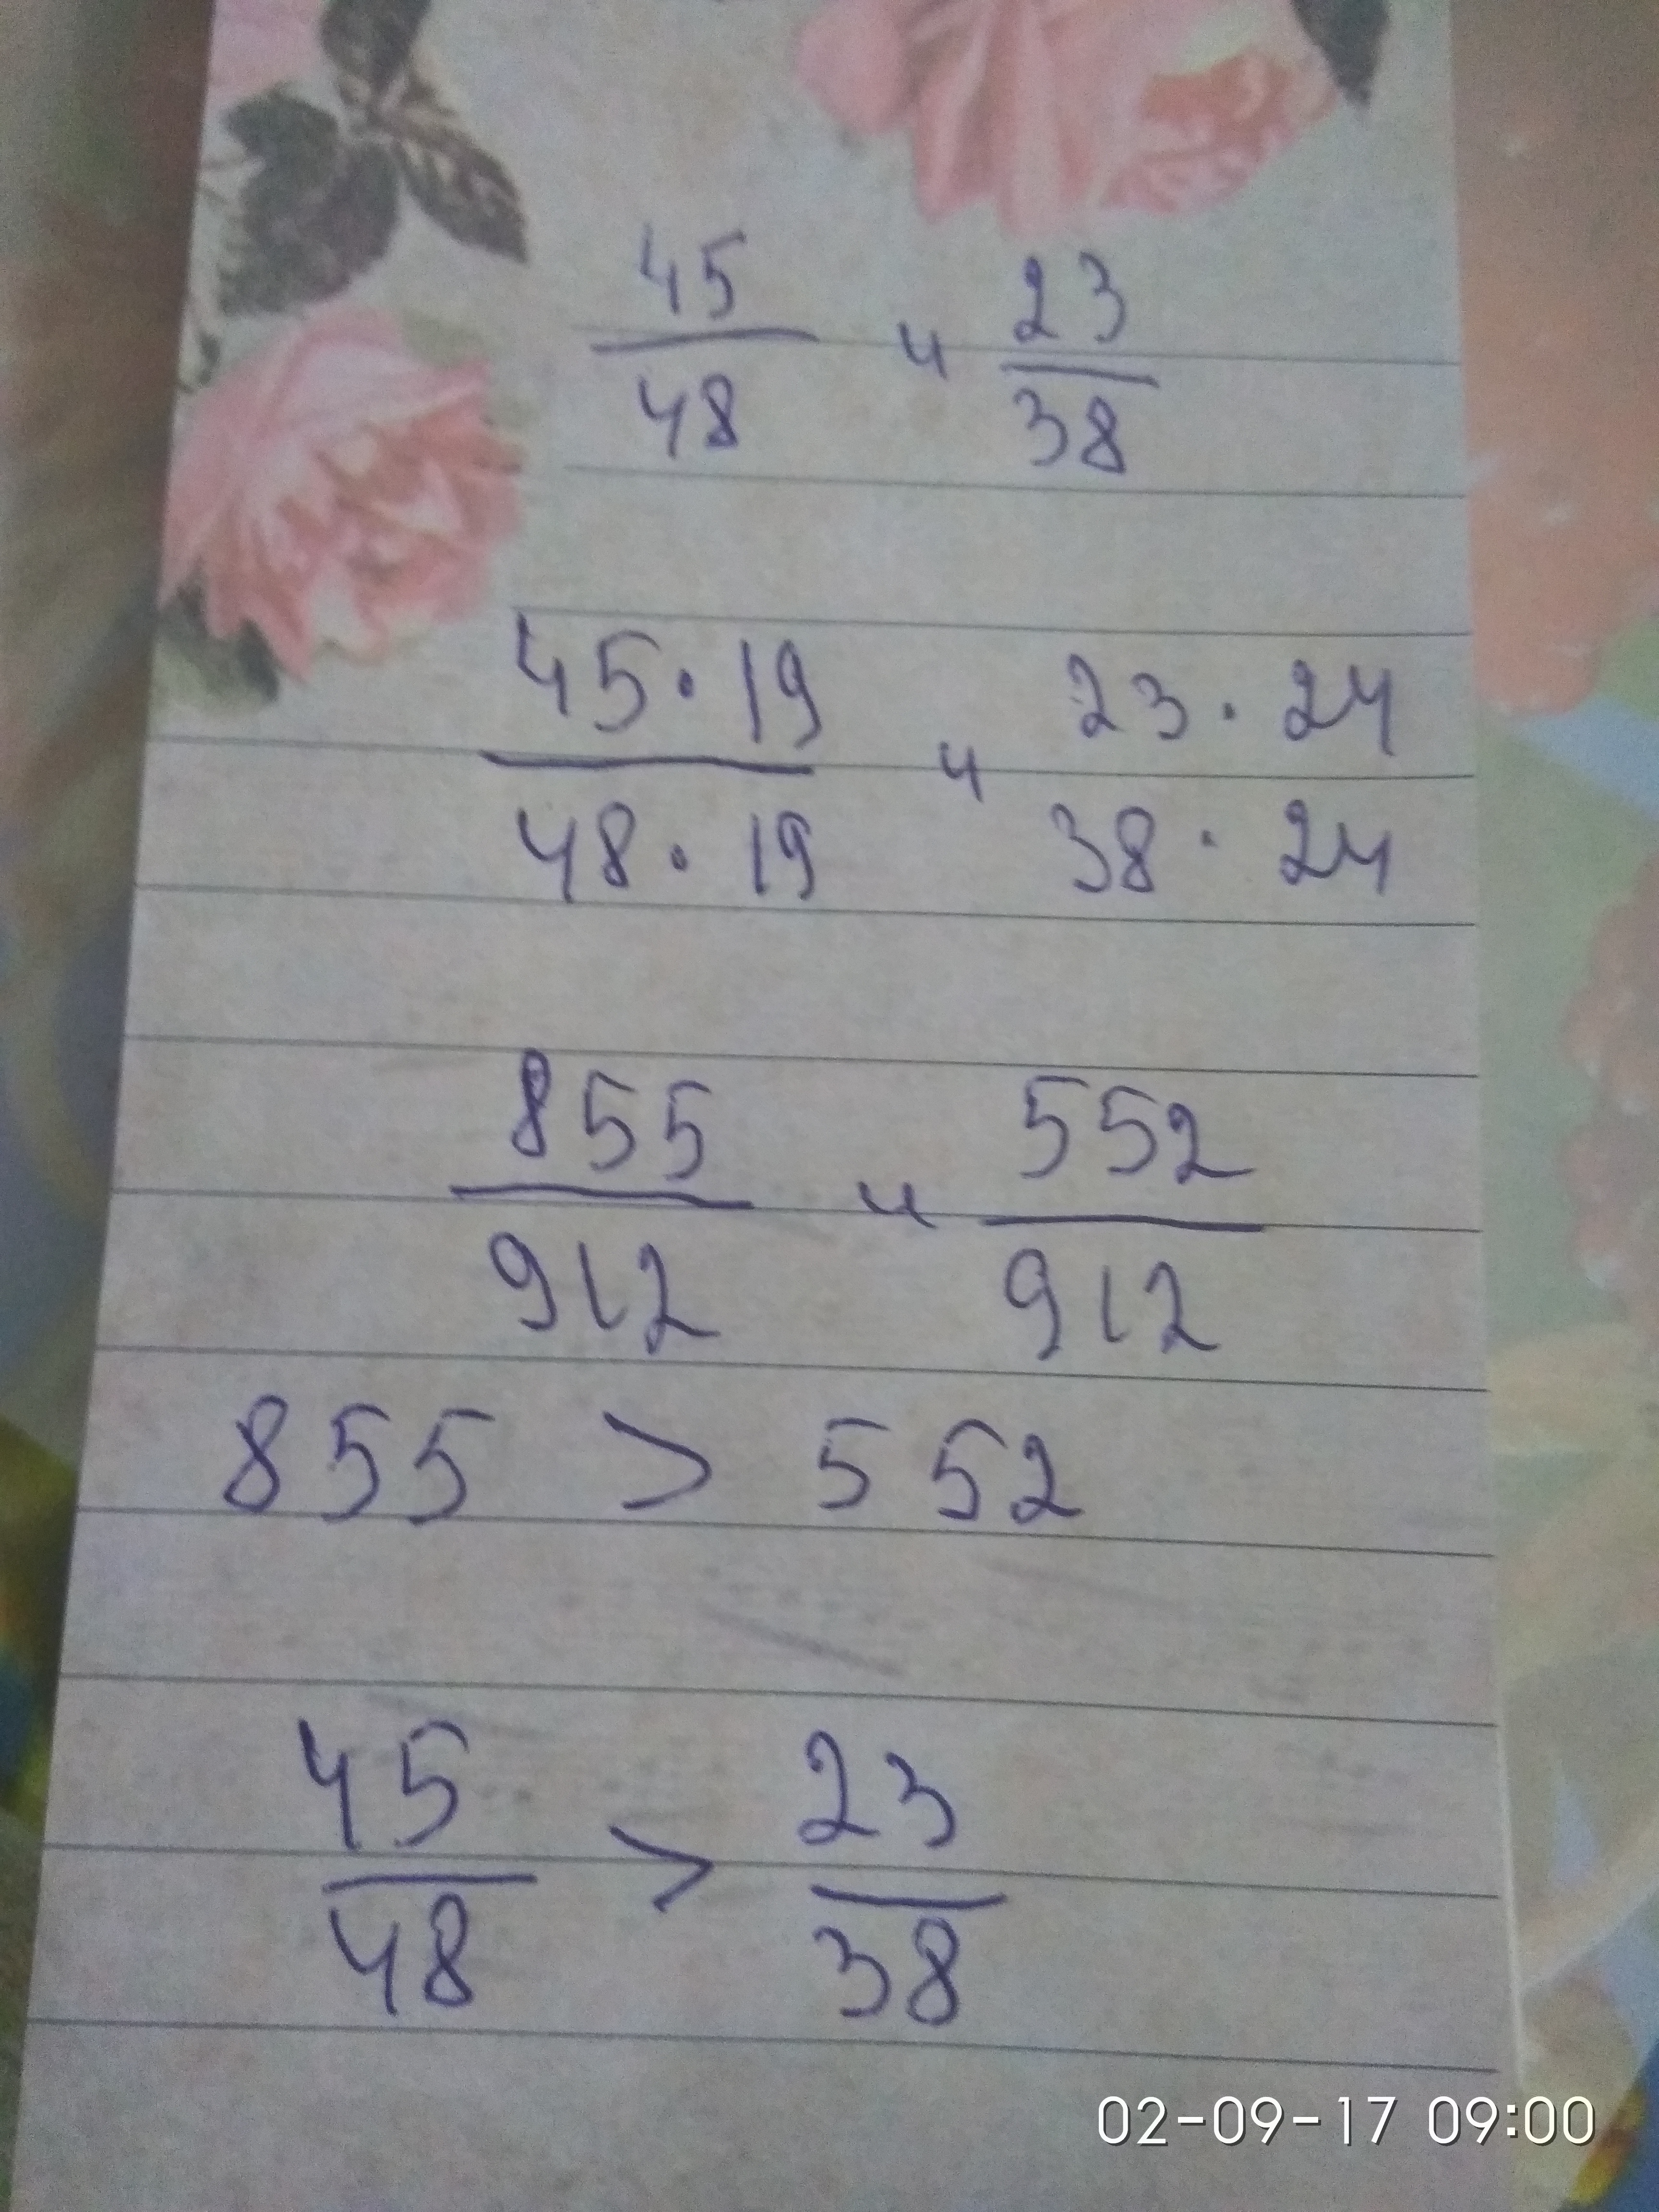 45/48 и 23/38
45·19/48·19 и 23·24 38·24
855/912 и 552/912
855 > 552
45/48 > 23/38
02-09-17 09:00